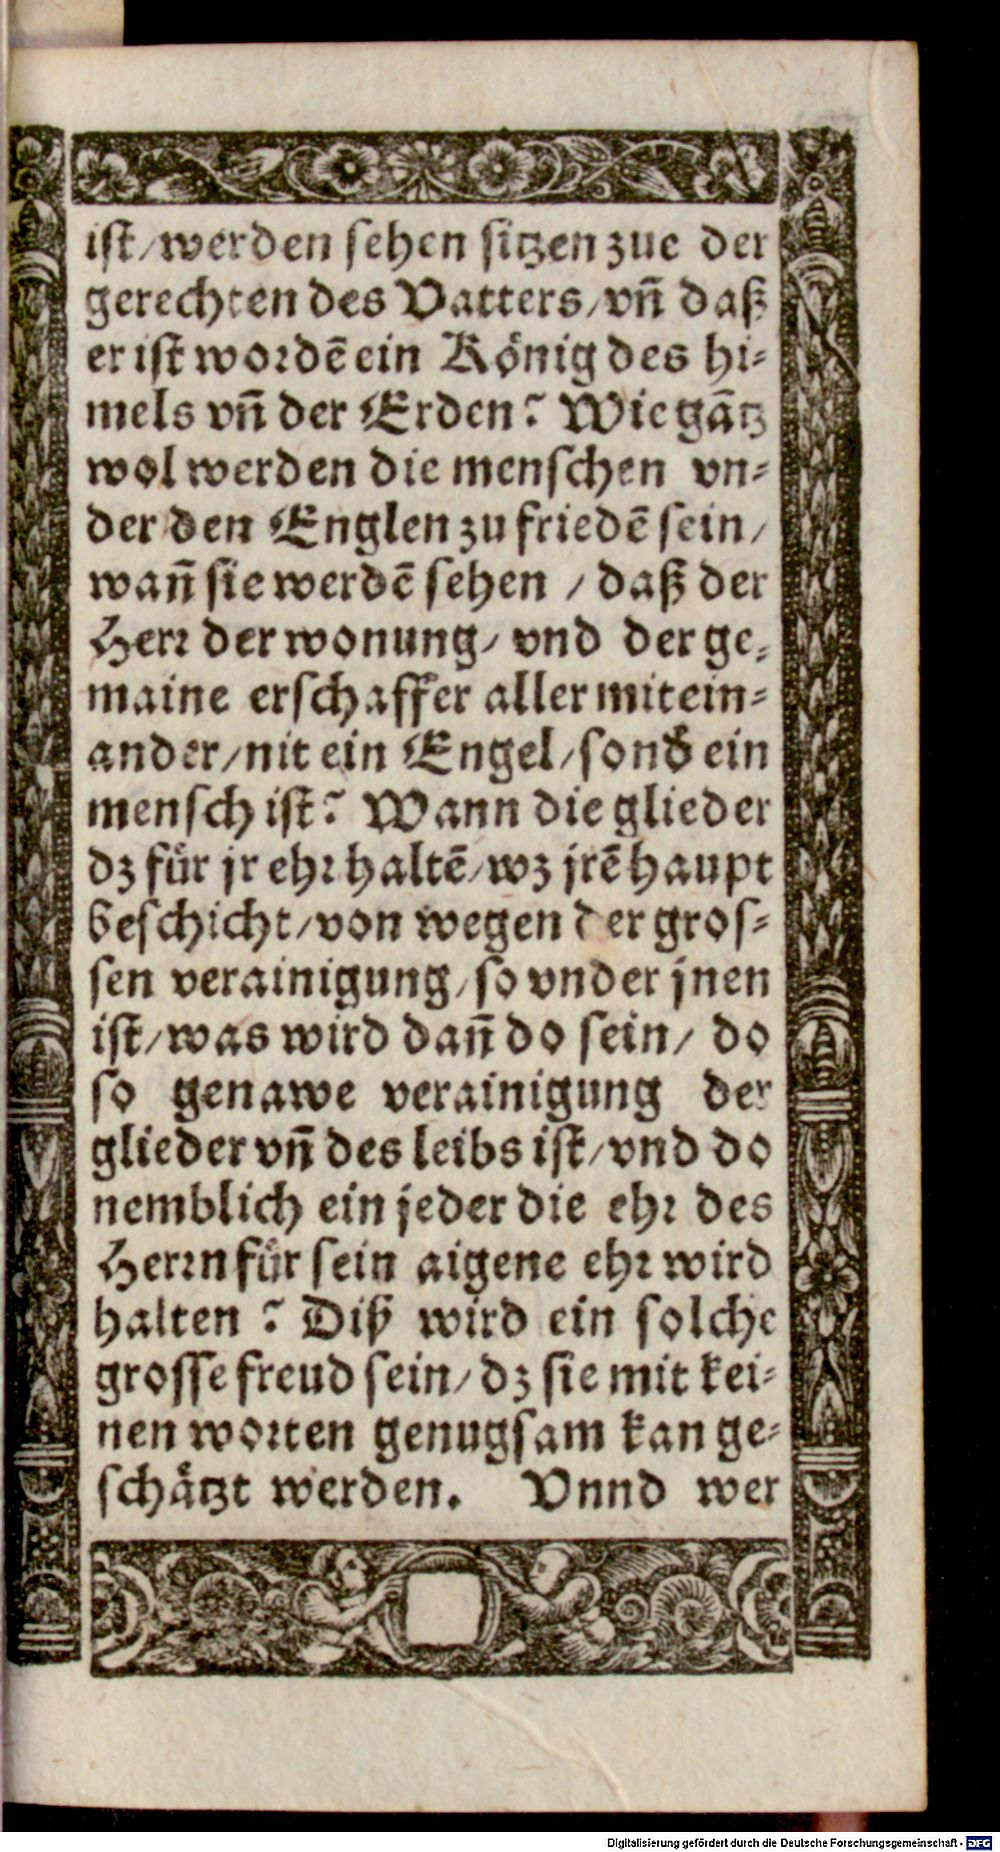 ist/werden sehen sitzen zue der
gerechten des Vatters/vn̄ daß
er ist wordē ein König des hi-
mels vn̄ der Erden? Wie gātz
wol werden die menschen vn-
der den Englen zu friedē sein/
wan̄ sie werdē sehen / daß der
Herr der wonung/ vnd der ge-
maine erschaffer aller mitein-
ander/nit ein Engel/sond' ein
mensch ist? Wann die glieder
dz für jr ehr haltē/wz jrē haupt
beschicht/von wegen der gros-
sen verainigung/so vnder jnen
ist/was wird dan̄ do sein/ do
so genawe verainigung der
glieder vn̄ des leibs ist/vnd do
nemblich ein jeder die ehr des
Herrn für sein aigene ehr wird
halten ? Diß wird ein solche
grosse freud sein/dz sie mit kei-
nen worten genugsam kan ge-
schätzt werden. Vnnd wer
Digitalisierung gefördert durch die Deutsche Forschungsgemeinschaft - DFG